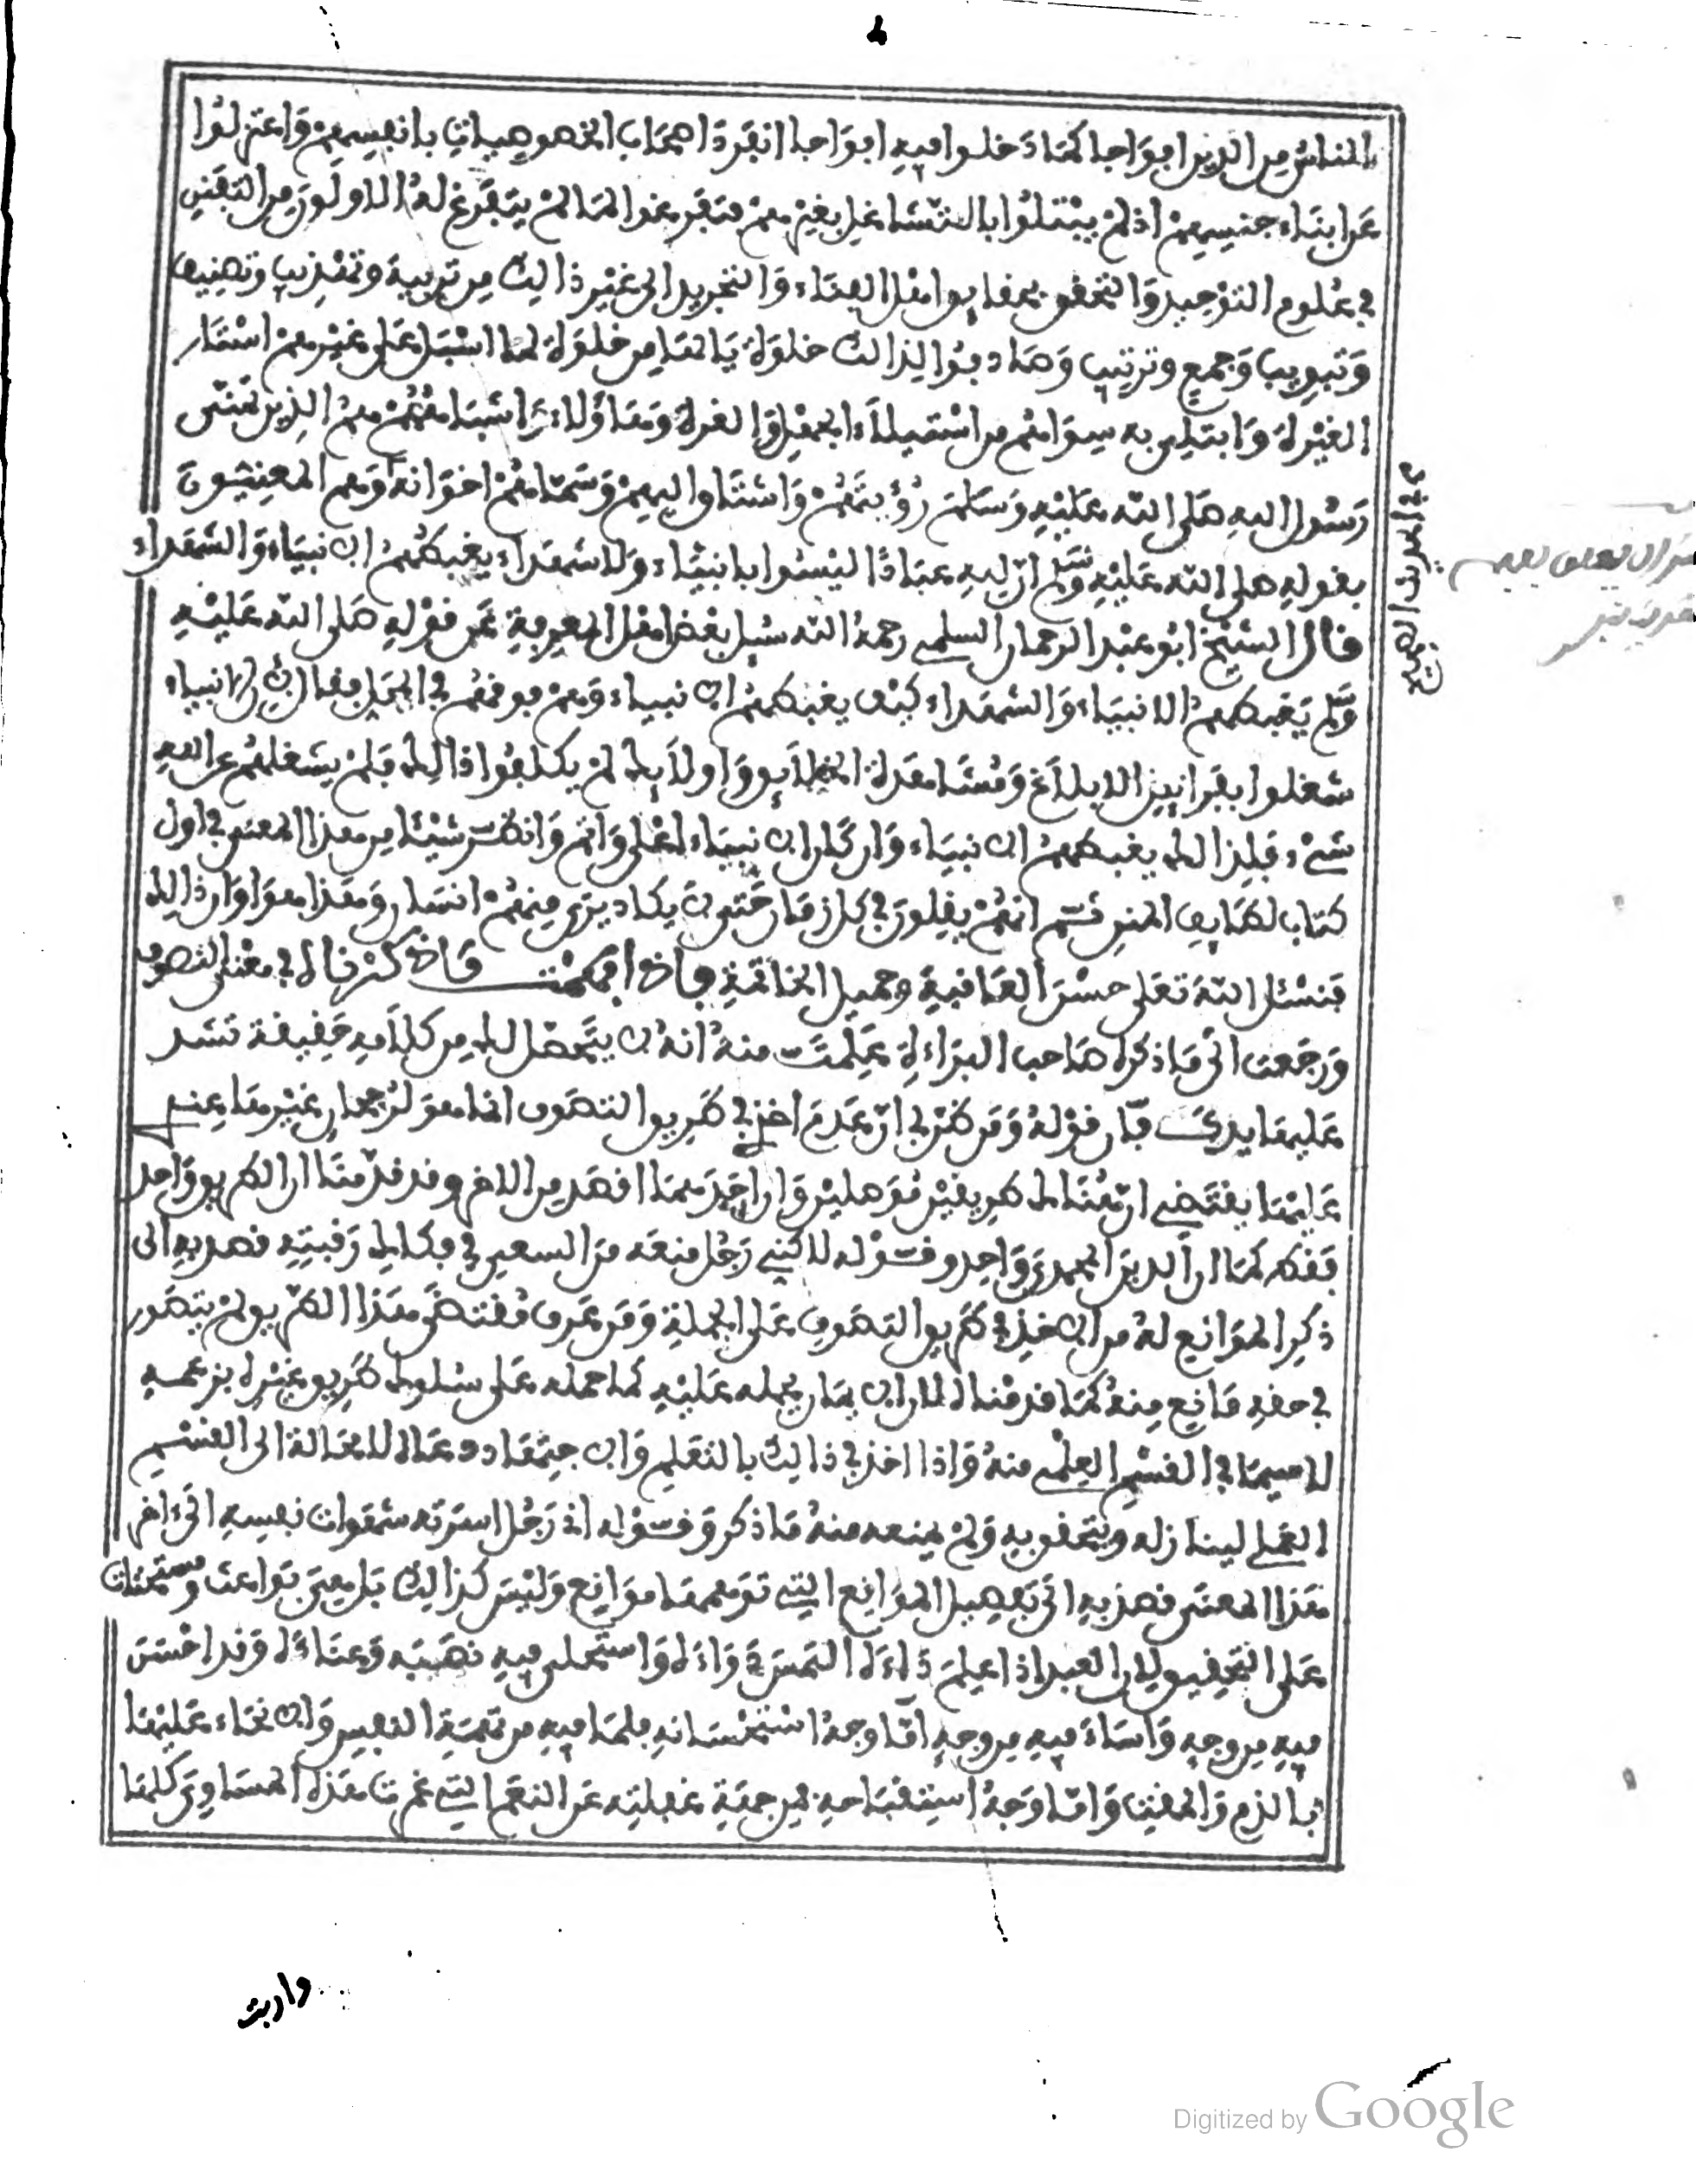 الناس من الدين افواجا كما دخلوا فيه افواجا انفرد اصحاب الخصوصيات بانفسهم واعتزلوا
عن ابناء جنسهم اذ لم يبتلوا بالتشاغل بغيرهم فتفرغوا لما لم يتفرغ له الاولون من التفنن
في علوم التوحيد والتحقق بحقايق اهل الفناء والتجريد الى غير ذالك من تربية وتهذيب وتصنيف
وتبويب وجمع وترتيب وصادفوا لذالك خلوة يالها من خلوة لما اسبل على غيرهم استار
الغيرة وابتلي به سواهم من استيلاء الجهل والغرة وهاؤلاء اشباههم هم الذين تمنى
رسول الله صلى الله عليه وسلم رؤيتهم واشتاق اليهم وسماهم اخوانه وهم المعنيون
بقوله صلى الله عليه وسلم ان لله عبادا ليسوا بانبياء ولا شهداء يغبطهم الانبياء والشهداء
قال الشيخ ابو عبد الرحمان السلمي رحمه الله سئل بعض اهل المعرفة عن قوله صلى الله عليه
وسلم يغبطهم الانبياء والشهداء كيف يغبطهم الانبياء وهم فوقهم في المحل فقال لان الانبياء
شغلوا بفرائض الابلاغ ومشاهدة الخلائق واولائك لم يكلفوا ذالك فلم يشغلهم عن الله
شيء فلذالك يغبطهم الانبياء وان كان الانبياء اعلى واتم وانظر شيئا من هذا المعنى في اول
كتاب لطايف المنن ثم انهم يقلون في كل زمان حتى لا يكاد يرى منهم انسان وهذا هو اوان ذالك
فنسئل الله تعلى حسن العافية وجميل الخاتمة فاذا فهمت ما ذكرنا في معنى التصوف
ورجعت الى ما ذكره صاحب البراءة علمت منه انه لا يتحصل لك من كلامه حقيقة تشد
عليها يدك فان قوله ومن نظر في ان عدم اخذ في طريق التصوف انما هو لرجحان غيرها عنده
عليها يقتضي ان هناك طريقين موصلين وان احدهما اقصد من الاخر وقد قدمنا ان الطريق واحد
فقط كما ان الدين المحمدي واحد وقوله لاكني رجل منعه من السعي في فكاك رقبته قصد به الى
ذكر الموانع له من الاخذ في طريق التصوف على الجملة ومن عرف مقتضى هذا الطريق لم يتصور
في حقه مانع منه كما قدمنا اذ الايمان يحمله عليه كما حمله على سلوك طريق غيره بزعمه
لاسيما في القسم العلمي منه واذا اخذ في ذالك بالتعلم والاجتهاد دعاه لا محالة الى القسم
العملي لينازله ويتحقق به ولم يمنعه منه ما ذكر وقوله اذ رجل استرته شهوات نفسه الى اخر
هذا المعنى قصد به الى تفصيل الموانع التي توهمها موانع وليس كذالك بل هي بواعث ومستحثات
على التحقيق لان العبد اذا علم داءه التمس دواءه واستحلى فيه نصبه وعناءه وقد احسن
فيه من وجه واساء فيه من وجه اما وجه استحسانه فلما فيه من تهمة النفس والانحاء عليها
بالذم والمقت واما وجه استقباحه فمن جهة غفلته عن النعم التي غمرت هذه المساوي كلها
وارتب